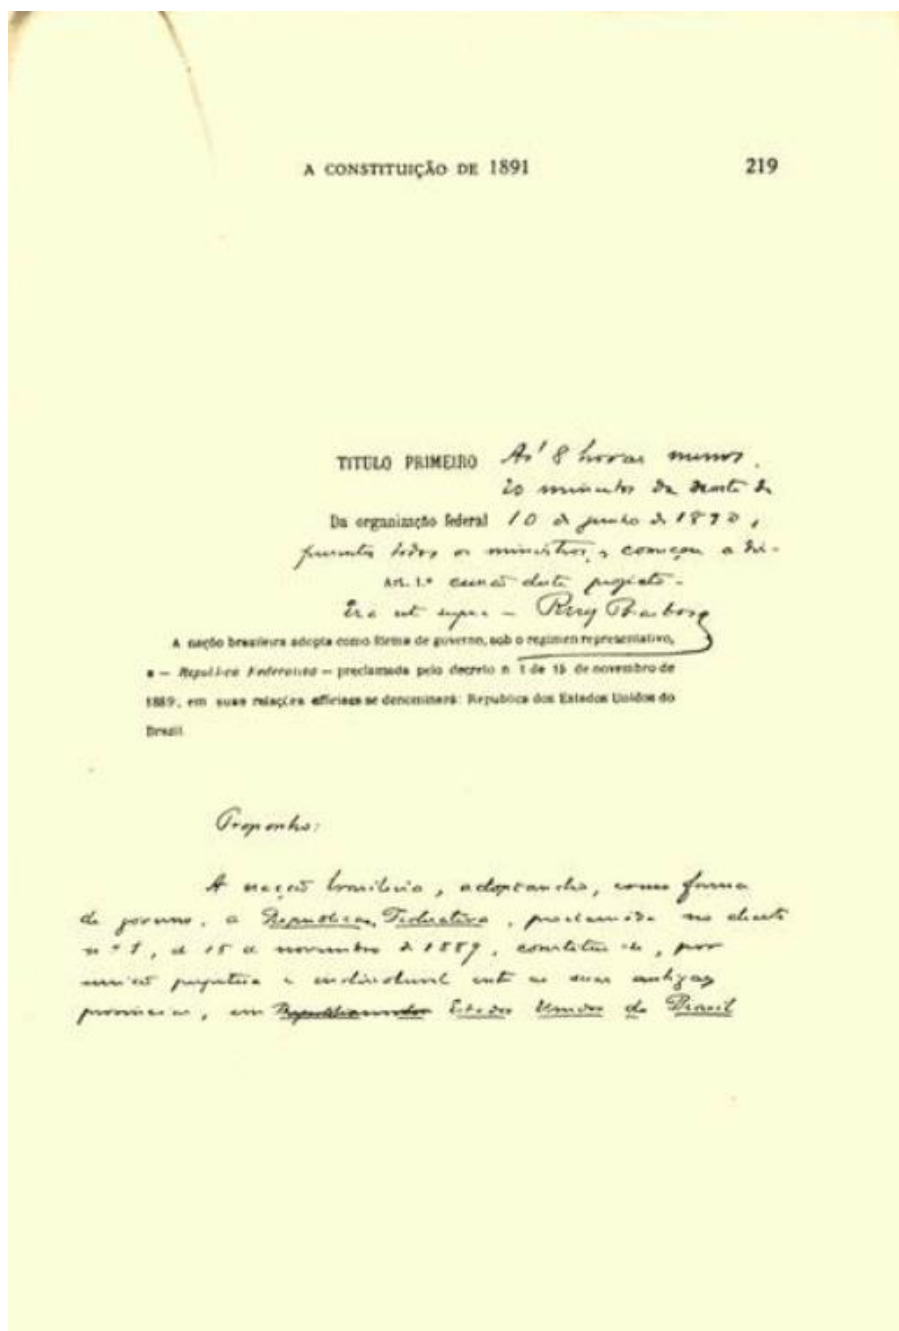 A CONSTITUIÇÃO DE 1891 219
TITULO PRIMEIRO As' 8 horas menos
20 minutos da noite de
Da organização federal 10 de junho de 1890,
presentes todos os ministros, começou a dis-
Art. 1.º cussão deste projecto.
Era ut supra — Ruy Barbosa
A nação brazileira adopta como fórma de governo, sob o regimen representativo,
a — Republica Federativa — proclamada pelo decreto n. 1 de 15 de novembro de
1889; em suas relações officiaes se denominará: Republica dos Estados Unidos do
Brazil
Proponho:
A nação brasileira, adoptando, como forma
de governo, a Republica Federativa, proclamada no decreto
nº 1, de 15 de novembro de 1889, constitue-se, por
união perpetua e indissoluvel entre as suas antigas
provincias, em Estados Unidos do Brasil